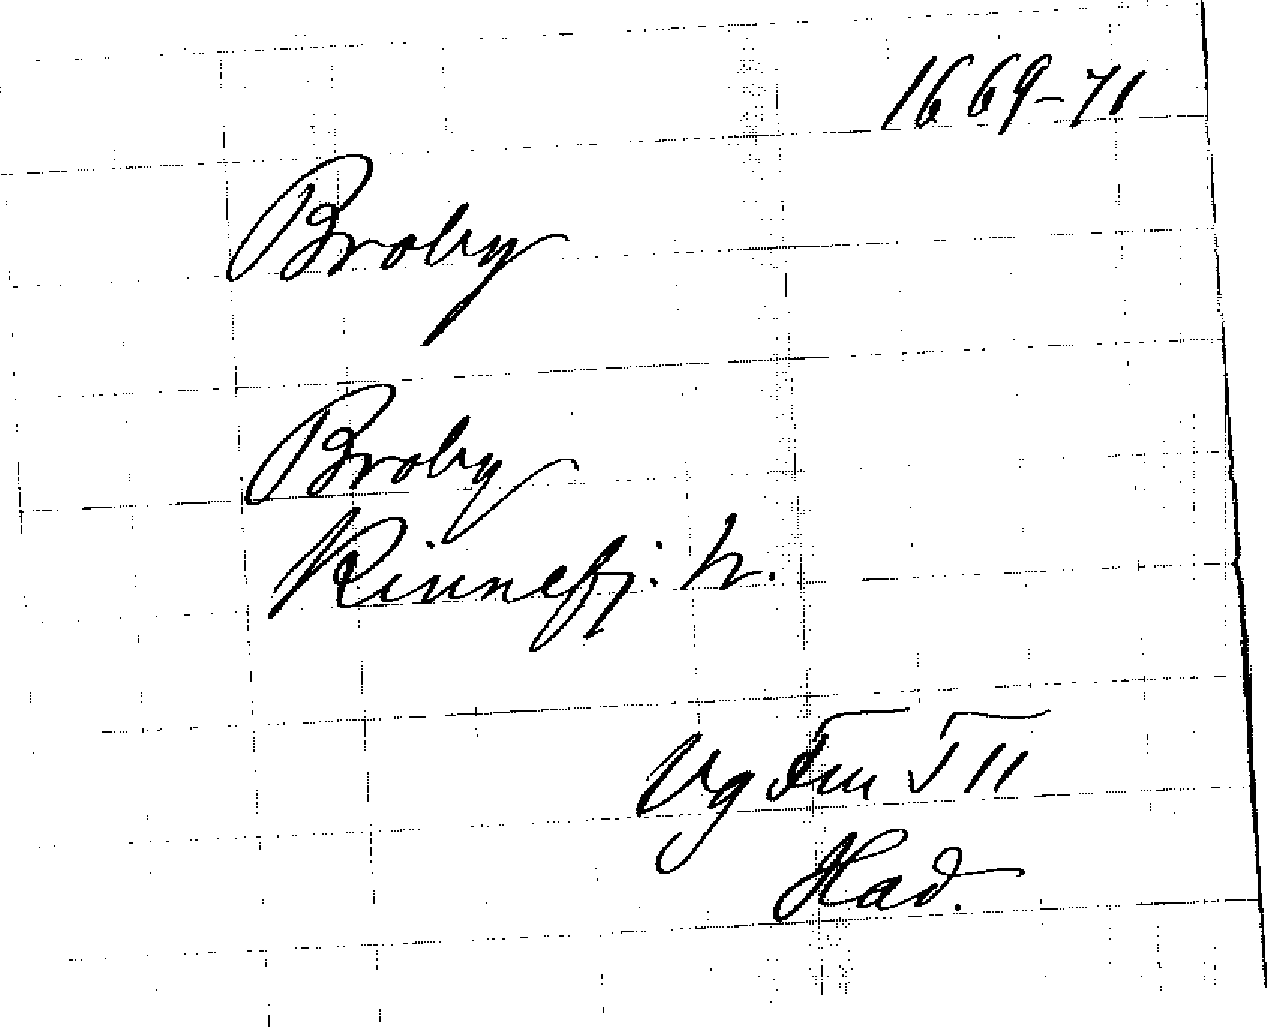 1669-71
Broby
Broby
Kinnefj. h.
Vg Fm III
Had.